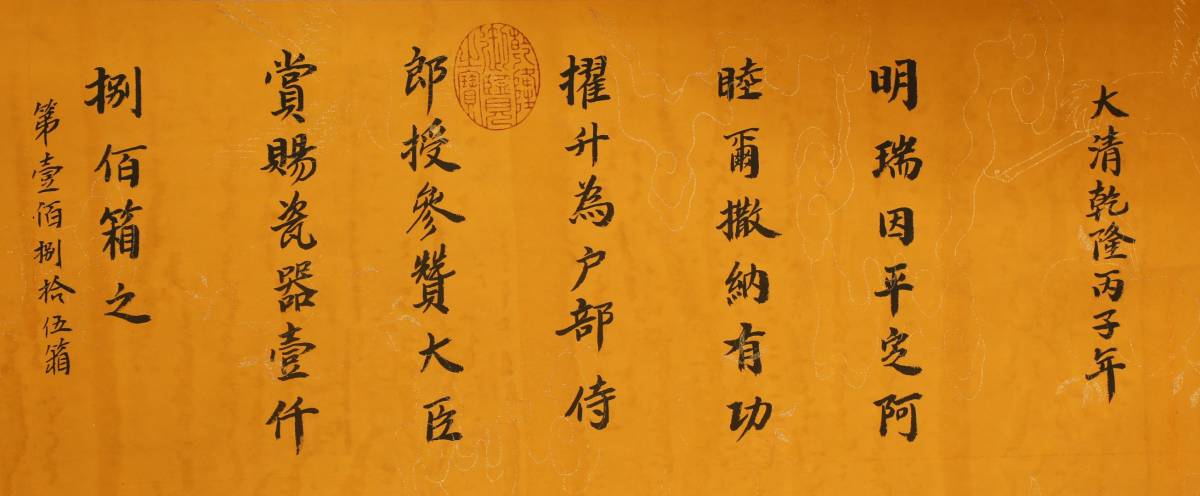 大清乾隆丙子年
明瑞因平定阿
睦爾撒納有功
擢升為户部侍
郎授參贊大臣
賞賜瓷器壹仟
捌佰箱之
第壹佰捌拾伍箱